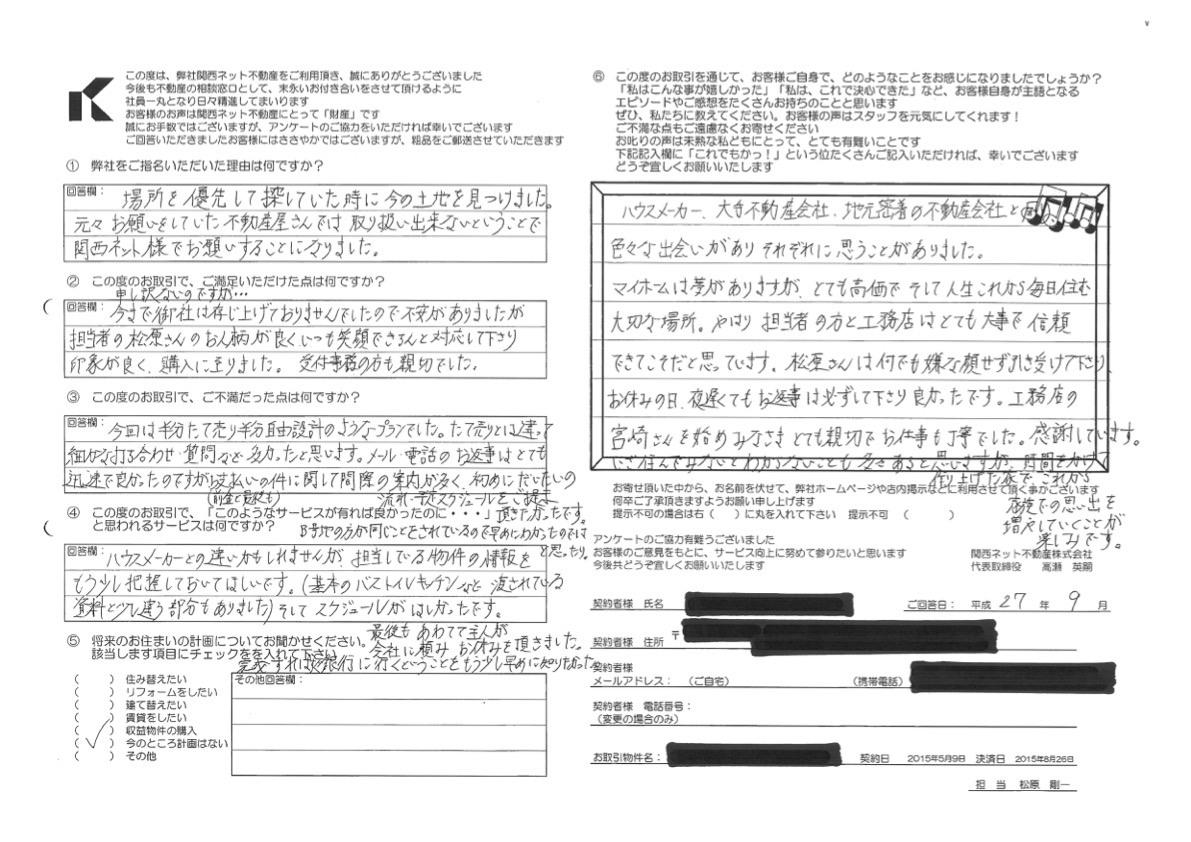 この度は、弊社関西ネット不動産をご利用頂き、誠にありがとうございました
今後も不動産の相談窓口として、末永いお付き合いをさせて頂けるように
社員一丸となり日々精進してまいります
お客様のお声は関西ネット不動産にとって「財産」です
誠にお手数ではございますが、アンケートのご協力をいただければ幸いでございます
ご回答いただきましたお客様にはささやかではございますが、粗品をご郵送させていただきます
① 弊社をご指名いただいた理由は何ですか?
回答欄: 場所を優先して探していた時に今の土地を見つけました。
元々お願いをしていた不動産屋さんでは取り扱い出来ないということで
関西ネット様でお願いすることになりました。
② この度のお取引で、ご満足いただけた点は何ですか?
申し訳ないのですが…
回答欄: 今まで御社は存じ上げておりませんでしたので不安がありましたが
担当者の松原さんのお人柄が良くいつも笑顔できちんと対応して下さり
印象が良く、購入に至りました。受付事務の方も親切でした。
③ この度のお取引で、ご不満だった点は何ですか?
回答欄: 今回は半分たて売り半分自由設計のようなプランでした。たて売りとは違って
細かな打ち合わせ・質問など多かったと思います。メール・電話のお返事はとても
迅速で良かったのですが支払いの件に関して間際の案内が多く、初めにだいたいの
(前金と最後も) 流れ・スケジュールをご提示
頂きたかったです。
④ この度のお取引で、「このようなサービスが有れば良かったのに・・・」
と思われるサービスは何ですか?
B号地の方が同じことをされているので早めにわかったのでは
と思ったり。
回答欄: ハウスメーカーとの違いかもしれませんが、担当している物件の情報を
もう少し把握しておいてほしいです。(基本のバストイレキッチンなど 渡されている
資料と少し違う部分もありました)そしてスケジュールがほしかったです。
最後も あわてて主人が
会社に頼み お休みを頂きました。
完成すれば後銀行に行くということをもう少し早めに知りたかった
⑤ 将来のお住まいの計画についてお聞かせください。
該当します項目にチェックをを入れて下さい
( ) 住み替えたい
( ) リフォームをしたい
( ) 建て替えたい
( ) 賃貸をしたい
( ) 収益物件の購入
(✓) 今のところ計画はない
( ) その他
その他回答欄:
⑥ この度のお取引を通じて、お客様ご自身で、どのようなことをお感じになりましたでしょうか?
「私はこんな事が嬉しかった」「私は、これで決心できた」など、お客様自身が主語となる
エピソードやご感想をたくさんお持ちのことと思います
ぜひ、私たちに教えてください。お客様の声はスタッフを元気にしてくれます!
ご不満な点もご遠慮なくお寄せください
お叱りの声は未熟な私どもにとって、とても有難いことです
下記記入欄に「これでもかっ!」という位たくさんご記入いただければ、幸いでございます
どうぞ宜しくお願いいたします
ハウスメーカー、大手不動産会社、地元密着の不動産会社と
色々な出会いがありそれぞれに思うことがありました。
マイホームは夢がありますが、とても高価で そして人生これから毎日住む
大切な場所。やはり担当者の方と工務店はとても大事で信頼
できてこそだと思っています。松原さんは何でも嫌な顔せず引き受けて下さり、
お休みの日、夜遅くてもお返事は必ずして下さり良かったです。工務店の
宮崎さんを始めみなさまとても親切でお仕事も丁寧でした。感謝しています。
いざ住んでみないとわからないことも多々あると思いますが、時間をかけて
作り上げた家で、これから
家族での思い出を
増やしていくことが
楽しみです。
お寄せ頂いた中から、お名前を伏せて、弊社ホームページや店内掲示などに利用させて頂く事がございます
何卒ご了承頂きますようお願い申し上げます
提示不可の場合は右( )に丸を入れて下さい 提示不可 ( )
アンケートのご協力有難うございました
お客様のご意見をもとに、サービス向上に努めて参りたいと思います
今後共どうぞ宜しくお願いいたします
関西ネット不動産株式会社
代表取締役 高瀬 英嗣
契約者様 氏名
ご回答日: 平成 27 年 9 月
契約者様 住所 〒
契約者様
メールアドレス: (ご自宅) (携帯電話)
契約者様 電話番号:
(変更の場合のみ)
お取引物件名: 契約日 2015年5月9日 決済日 2015年8月26日
担 当 松原 剛一